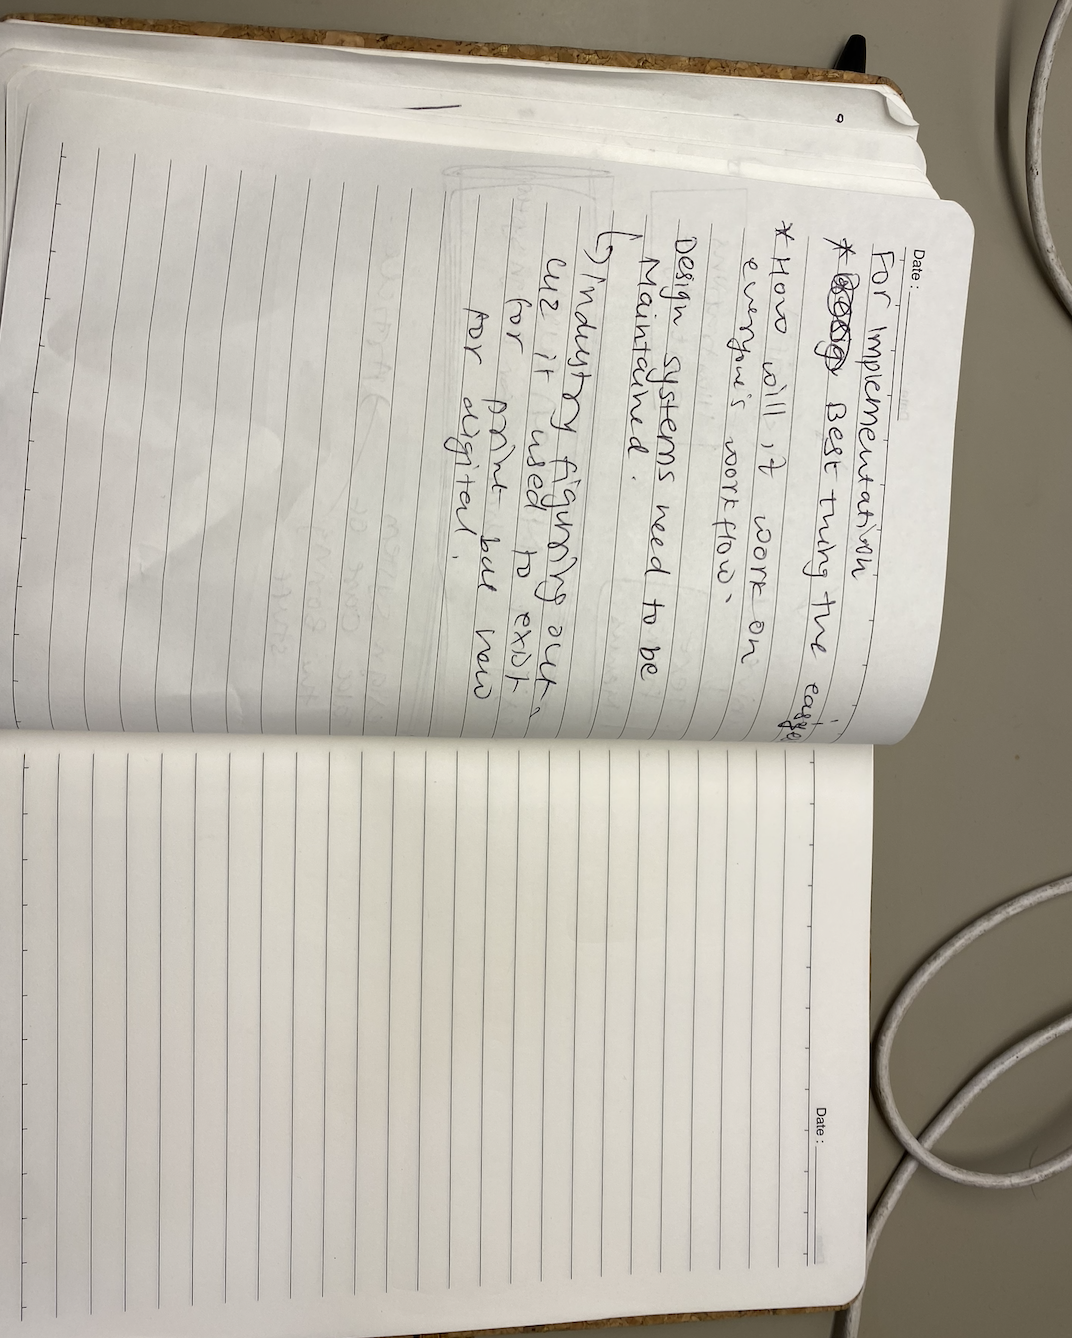 Date :
For Implementation
* Best thing the easier
* How will it work on
everyone's workflow.
Design systems need to be
Maintained.
↳ industry figuring out
cuz it used to exist
for print but now
for digital.
Date :